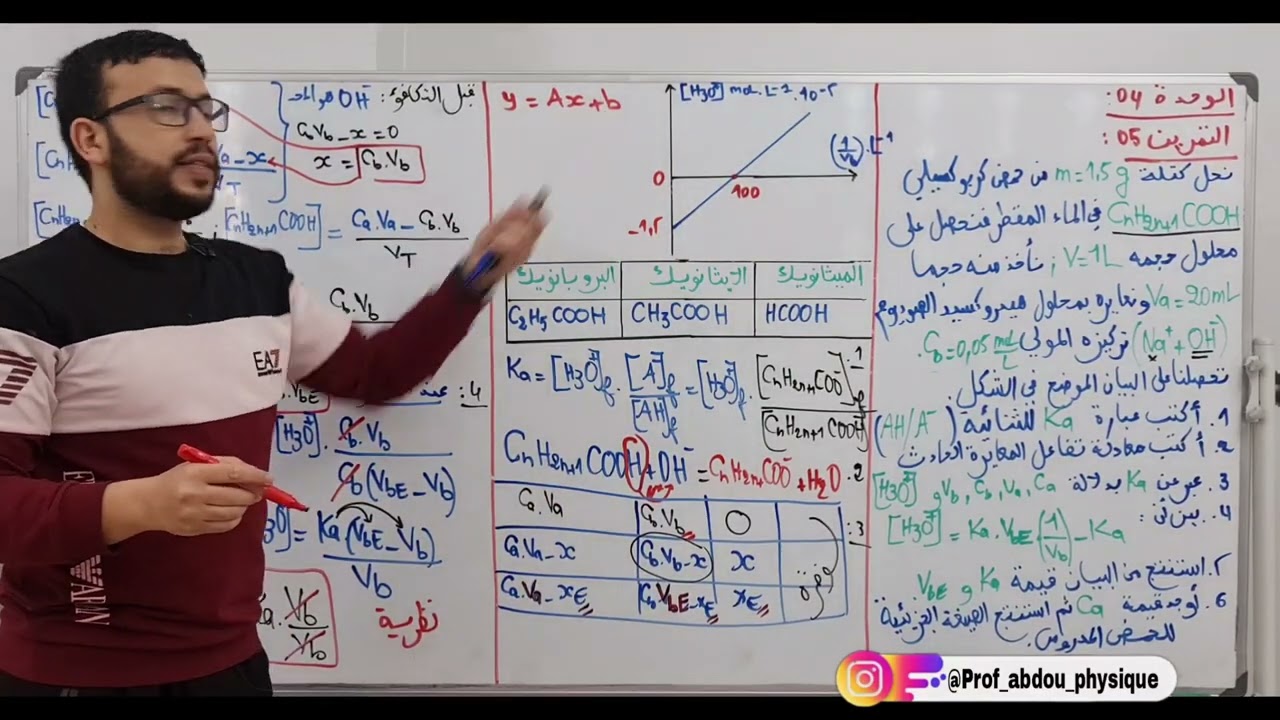 الوحدة 04:
التمرين 05:
نحل كتلة m = 1,5 g من حمض كربوكسيلي
CnH2n+1COOH في الماء المقطر فنحصل على
محلول حجمه V = 1L ; نأخذ منه حجما
Va = 20mL ونعايره بمحلول هيدروكسيد الصوديوم
(Na+ + OH-) تركيزه المولي Cb = 0,05 mol/L.
تحصلنا على البيان الموضح في الشكل
1. أكتب عبارة Ka للثنائية (AH/A-)
2. أكتب معادلة تفاعل المعايرة الحادث
3. عبر عن Ka بدلالة Ca, Va, Cb, Vb و [H3O+]
4. بين أن:
[H3O+] = Ka.VbE(1/Vb) - Ka
5. استنتج من البيان قيمة Ka و VbE
6. أوجد قيمة Ca ثم استنتج الصيغة الجزيئية
للحمض المدروس.
y = Ax + b
[H3O+] mol.L-1.10-5
(1/Vb).L-1
0
100
-1,5
الميثانويك
الإيثانويك
البروبانويك
HCOOH
CH3COOH
C2H5COOH
1. Ka = [H3O+]f . [A-]f / [AH]f = [H3O+]f . [CnH2n+1COO-]f / [CnH2n+1COOH]
2. CnH2n+1COOH + OH- = CnH2n+1COO- + H2O
3:
Ca.Va | Cb.Vb | 0
Ca.Va - x | Cb.Vb - x | x
Ca.Va - xE | Cb.VbE - xE | xE
قبل التكافؤ: OH- هو المحد
CbVb - x = 0
x = Cb.Vb
Va - x
VT
[CnH2n+1COOH] = Ca.Va - Cb.Vb / VT
Cb.Vb
4: عند
.VbE
[H3O+]. Cb.Vb / Cb(VbE - Vb)
= Ka(VbE - Vb) / Vb
Vb / Vb
نظرية
EA7
@Prof_abdou_physique